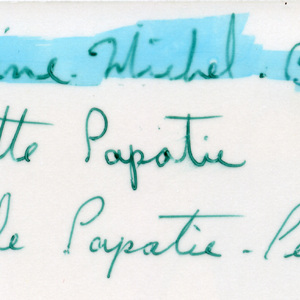 ine. Michel. B
tte Papatie
le Papatie - Pe